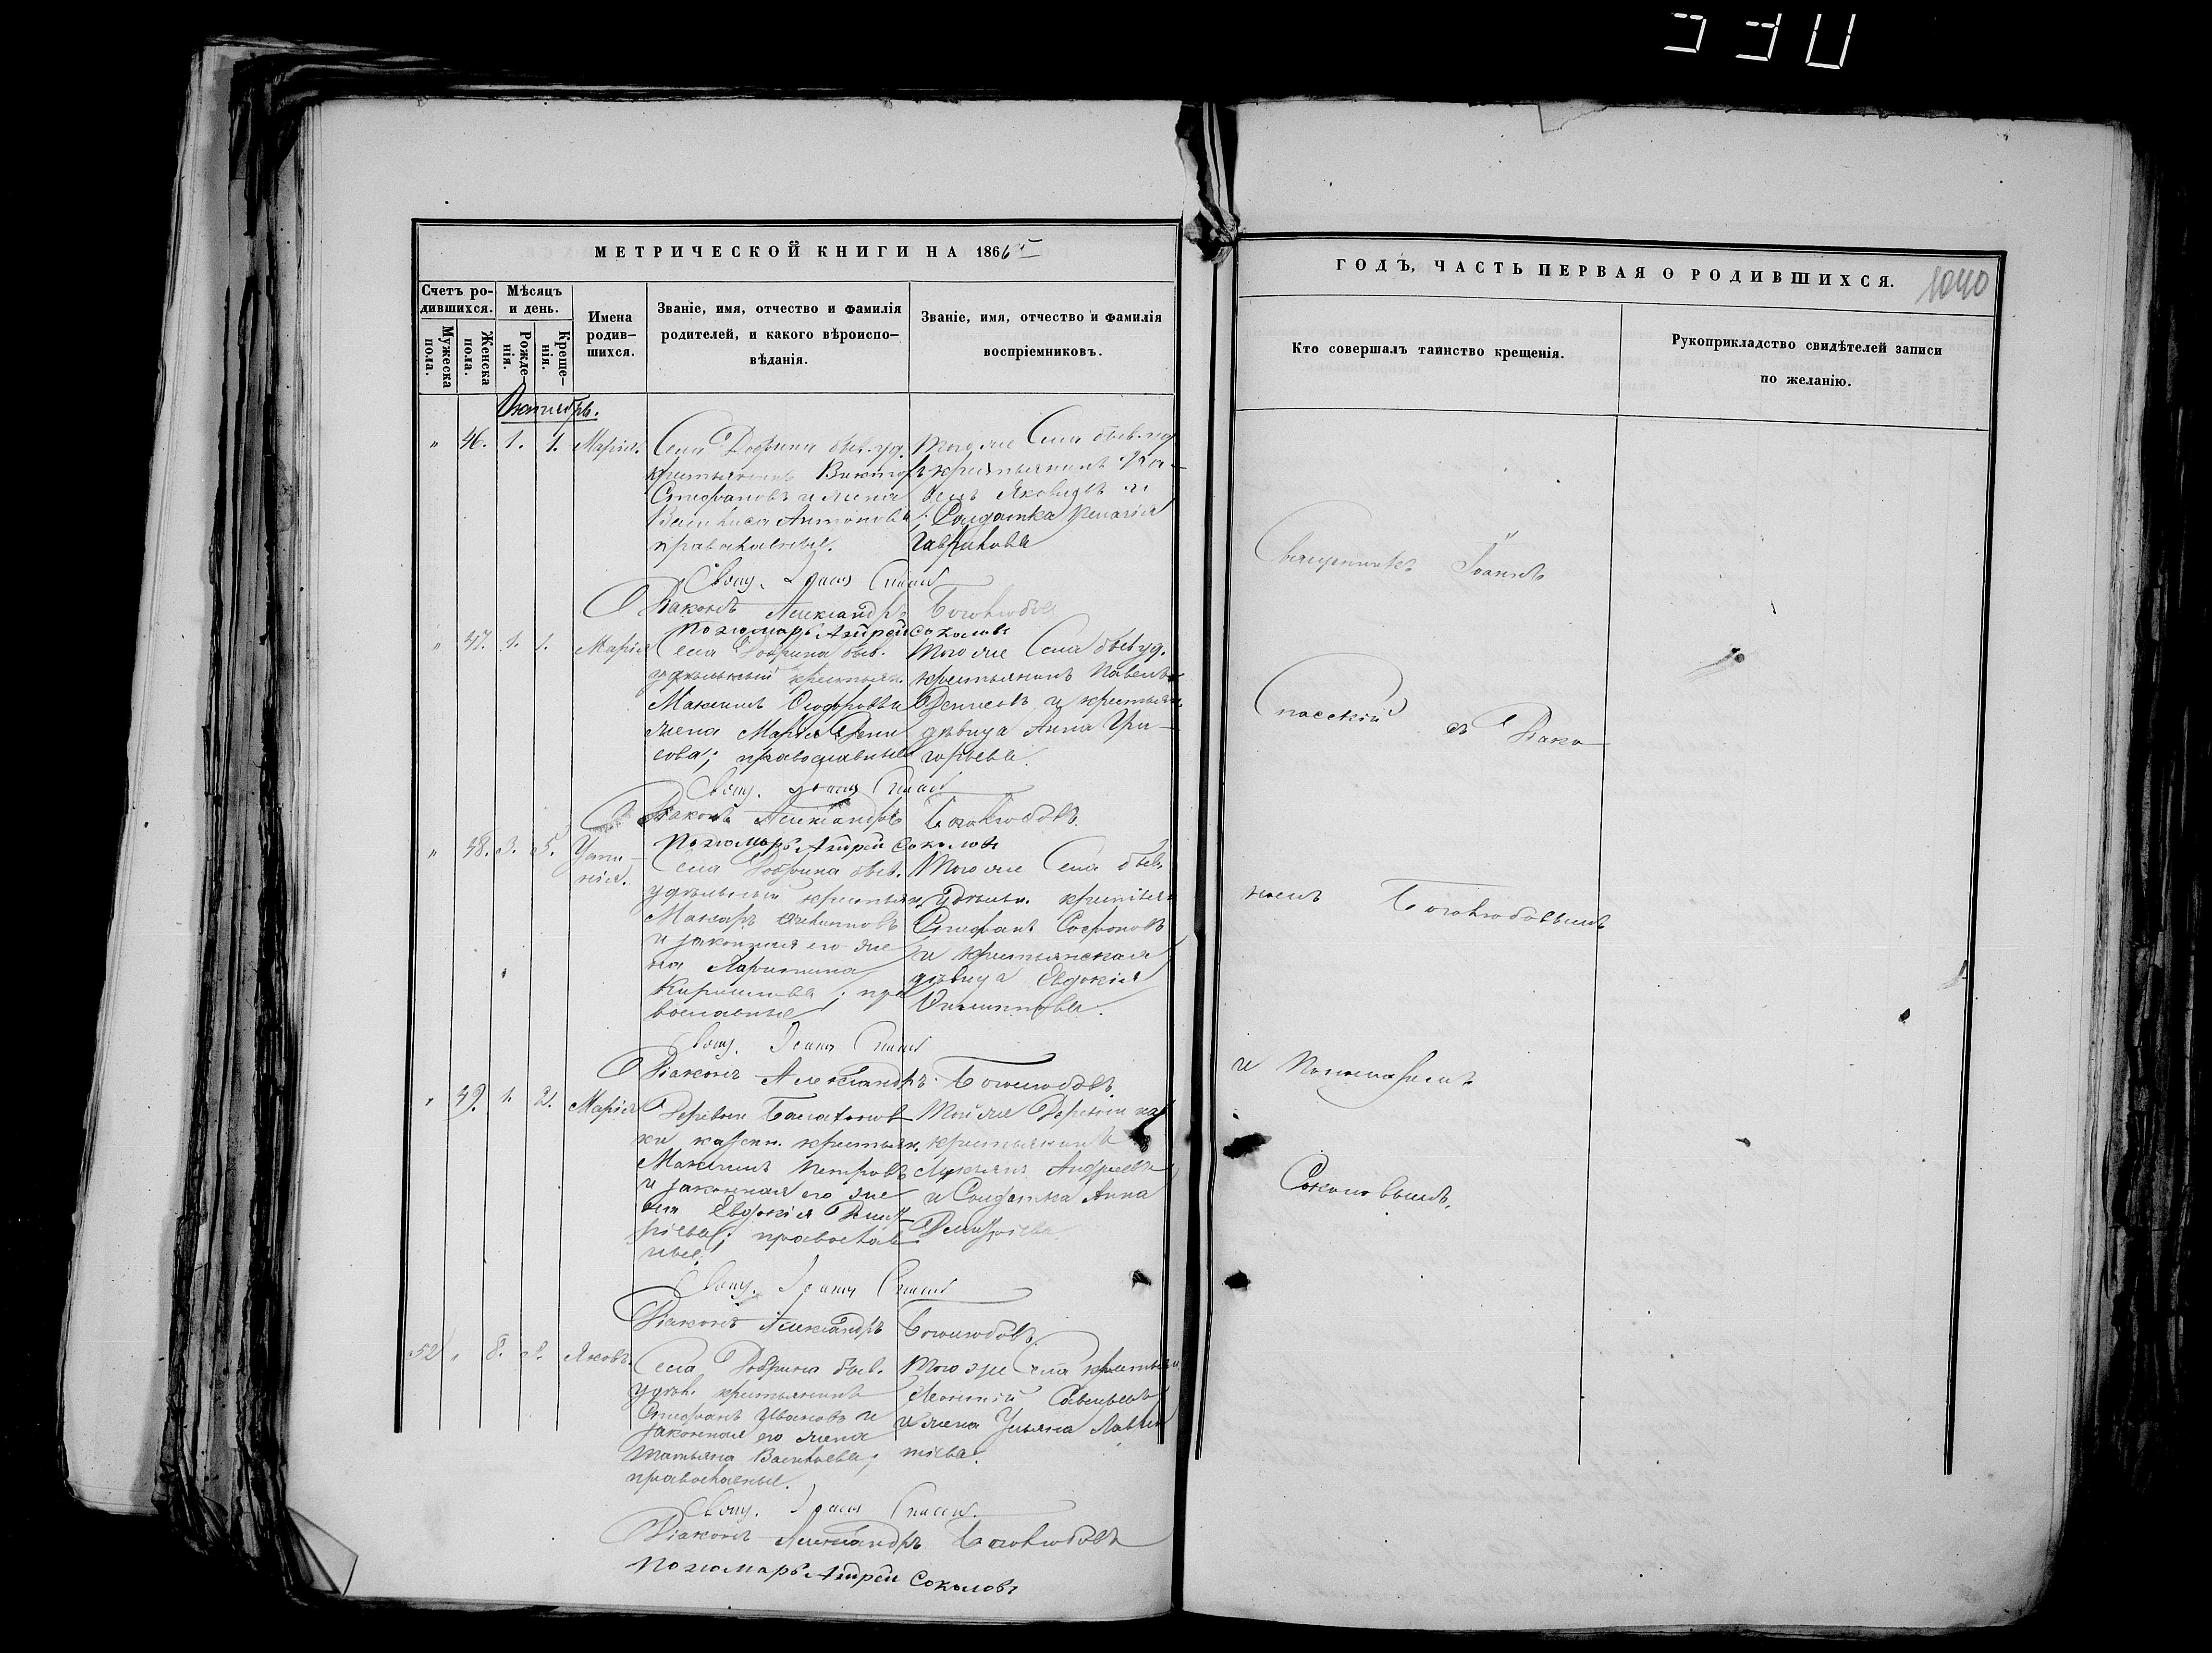 530
МЕТРИЧЕСКОЙ КНИГИ НА 1865
ГОДЪ, ЧАСТЬ ПЕРВАЯ О РОДИВШИХСЯ.
1040
Счетъ ро-
дившихся.
Мужеска
пола.
Женска
пола.
Мѣсяцъ
и день.
Рожде-
нія.
Креще-
нія.
Имена
родив-
шихся.
Званіе, имя, отчество и фамилія
родителей, и какого вѣроиспо-
вѣданія.
Званіе, имя, отчество и фамилія
воспріемниковъ.
Кто совершалъ таинство крещенія.
Рукоприкладство свидѣтелей записи
по желанію.
Октябрь.
" 46. 1. 1. Марія.
Села Добрина быв. уд.
крестьянинъ Викторъ
Стефановъ и жена
Василиса Антонова
православные.
Того же Села быв. уд.
крестьянинъ
Яковлевъ и
Солдатка
Гаврилова
Свящ. Іоаннъ Спасскій
Діаконъ Александръ Боголюбовъ
Пономарь Андрей Соколовъ
" 47. 1. 1. Марія
Села Добрина быв.
удѣльный крестьян.
Максимъ Ѳеодоровъ и
жена Марія Дени
сова; православные
Того же Села быв. уд.
крестьянинъ Павелъ
Денисовъ и крестьян.
дѣвица Анна Гри-
горьева.
Свящ. Іоаннъ Спасскій
Діаконъ Александръ Боголюбовъ.
Пономарь Андрей Соколовъ
" 48. 3. 5. Усти-
нія.
Села Добрина быв.
удѣльный крестьян.
Макаръ
и законная его же
на Харитина
Кириллова; пра
вославные
Того же Села быв.
удѣльн. крестьян.
Стефанъ Софоновъ
и крестьянская
дѣвица Евдокія
Филиппова.
Свящ. Іоаннъ Спасскій
Діаконъ Александръ Боголюбовъ.
" 49. 1. 2. Марія
Деревни
ки казен. крестьян.
Максимъ Петровъ
и законная его же
на Евдокія Димит
ріева; православ
ные.
Той же Деревни каз.
крестьянинъ
Лукьянъ Андреевъ
и Солдатка Анна
Димитріева
Свящ. Іоаннъ Спасскій
Діаконъ Александръ Боголюбовъ.
52 " 8. 8. Яковъ.
Села Добрина быв.
удѣл. крестьянинъ
Стефанъ Ивановъ и
законная его жена
Татьяна Васильева;
православные.
Того же Села крестьян.
Леонтій Савельевъ
и жена Ульяна Лаврен
тіева.
Свящ. Іоаннъ Спасскій.
Діаконъ Александръ Боголюбовъ
Пономарь Андрей Соколовъ
Священникъ Іоаннъ
Спасскій съ Діако
номъ Боголюбовымъ
и Пономаремъ
Соколовымъ.